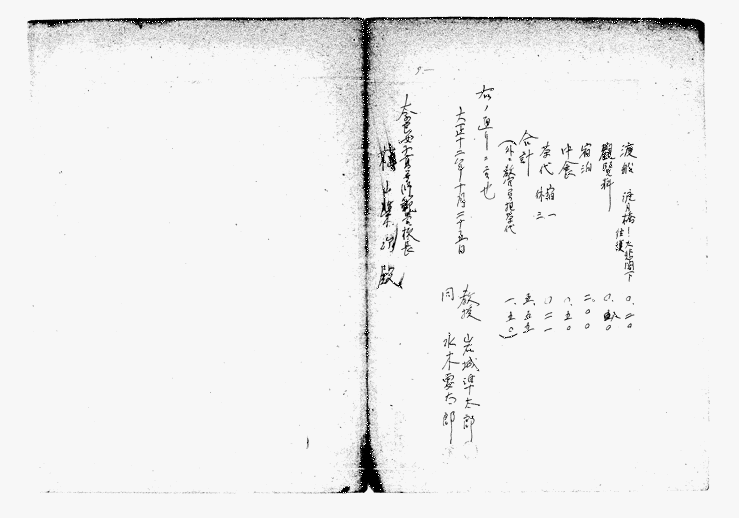 渡船 渡月橋ー大悲閣下 往復 〇.二〇
觀覧料
宿泊 二.〇〇
中食 〇.五〇
茶代 宿一 休三
合計 五.五五
(外ニ教官担茶代 一.五〇)
右ノ通リニ候也
大正十二年十月二十五日
教授 岩城準太郎
同 水木要太郎
奈良女子高等師範学校長
槇山榮次殿